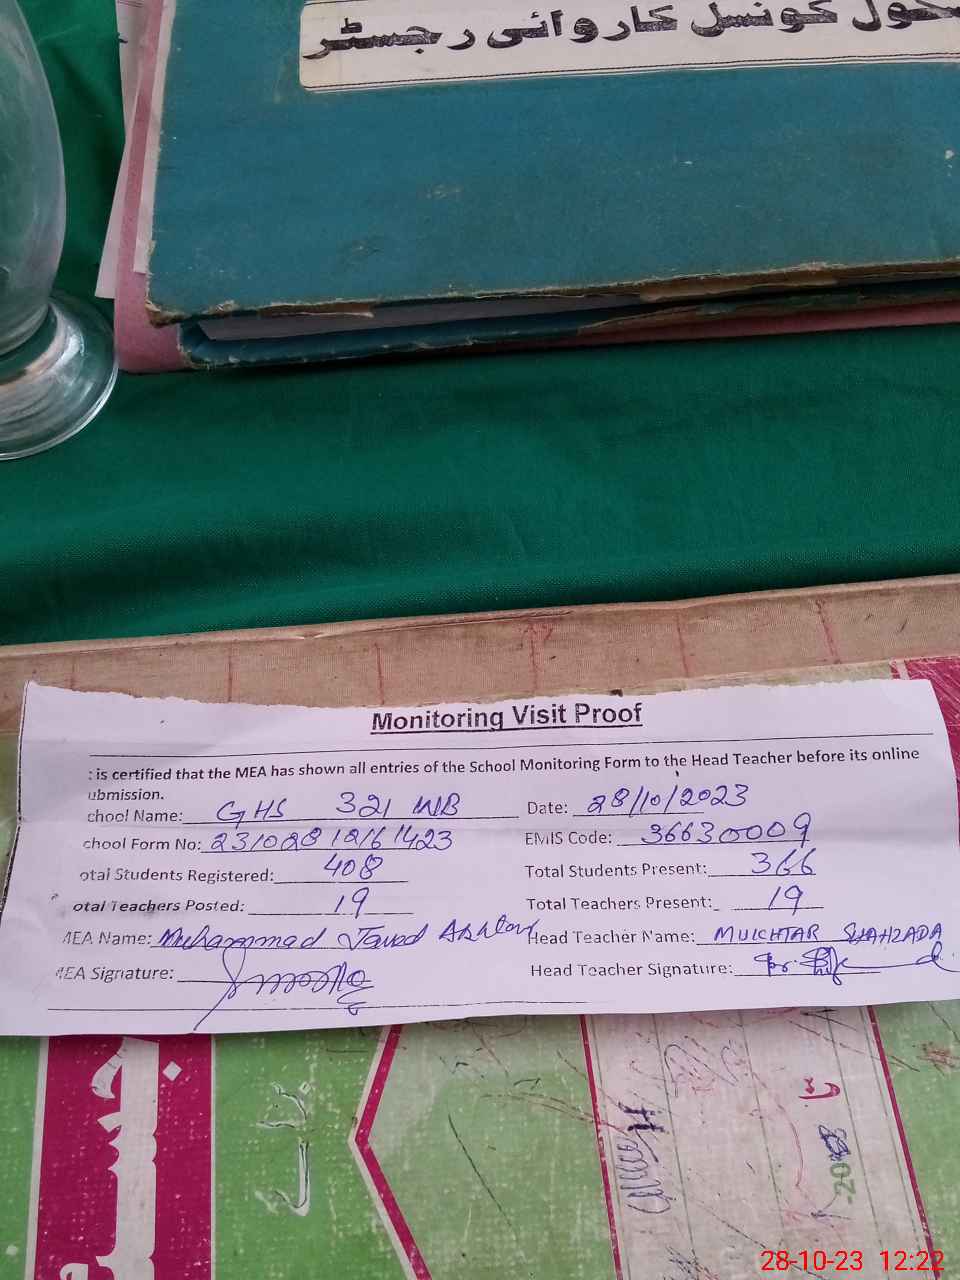 کونسل کاروائی رجسٹر
Monitoring Visit Proof
: is certified that the MEA has shown all entries of the School Monitoring Form to the Head Teacher before its online
ubmission.
chool Name: GHS 321 WB Date: 28/10/2023
chool Form No: 23102812161423 EMIS Code: 36630009
otal Students Registered: 408 Total Students Present: 366
otal Teachers Posted: 19 Total Teachers Present: 19
MEA Name: Muhammad Javed Head Teacher Name: MUKHTAR SHAHZADA
MEA Signature: Head Teacher Signature:
28-10-23 12:22